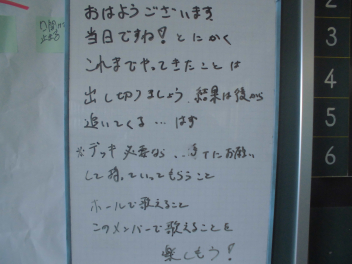 おはようございます
当日ですね！とにかく
これまでやってきたことは
出し切りましょう 結果は後から
追いてくる…はず
※デッキ 必要なら、
して持っていってもらうこと
ホールで歌えること
このメンバーで歌えることを
楽しもう！
2
3
4
5
6